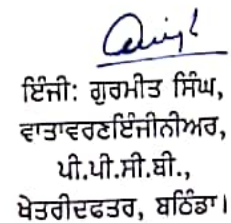 ਇੰਜੀ: ਗੁਰਮੀਤ ਸਿੰਘ,
ਵਾਤਾਵਰਣਇੰਜੀਨੀਅਰ,
ਪੀ.ਪੀ.ਸੀ.ਬੀ.,
ਖੇਤਰੀਦਫਤਰ, ਬਠਿੰਡਾ।